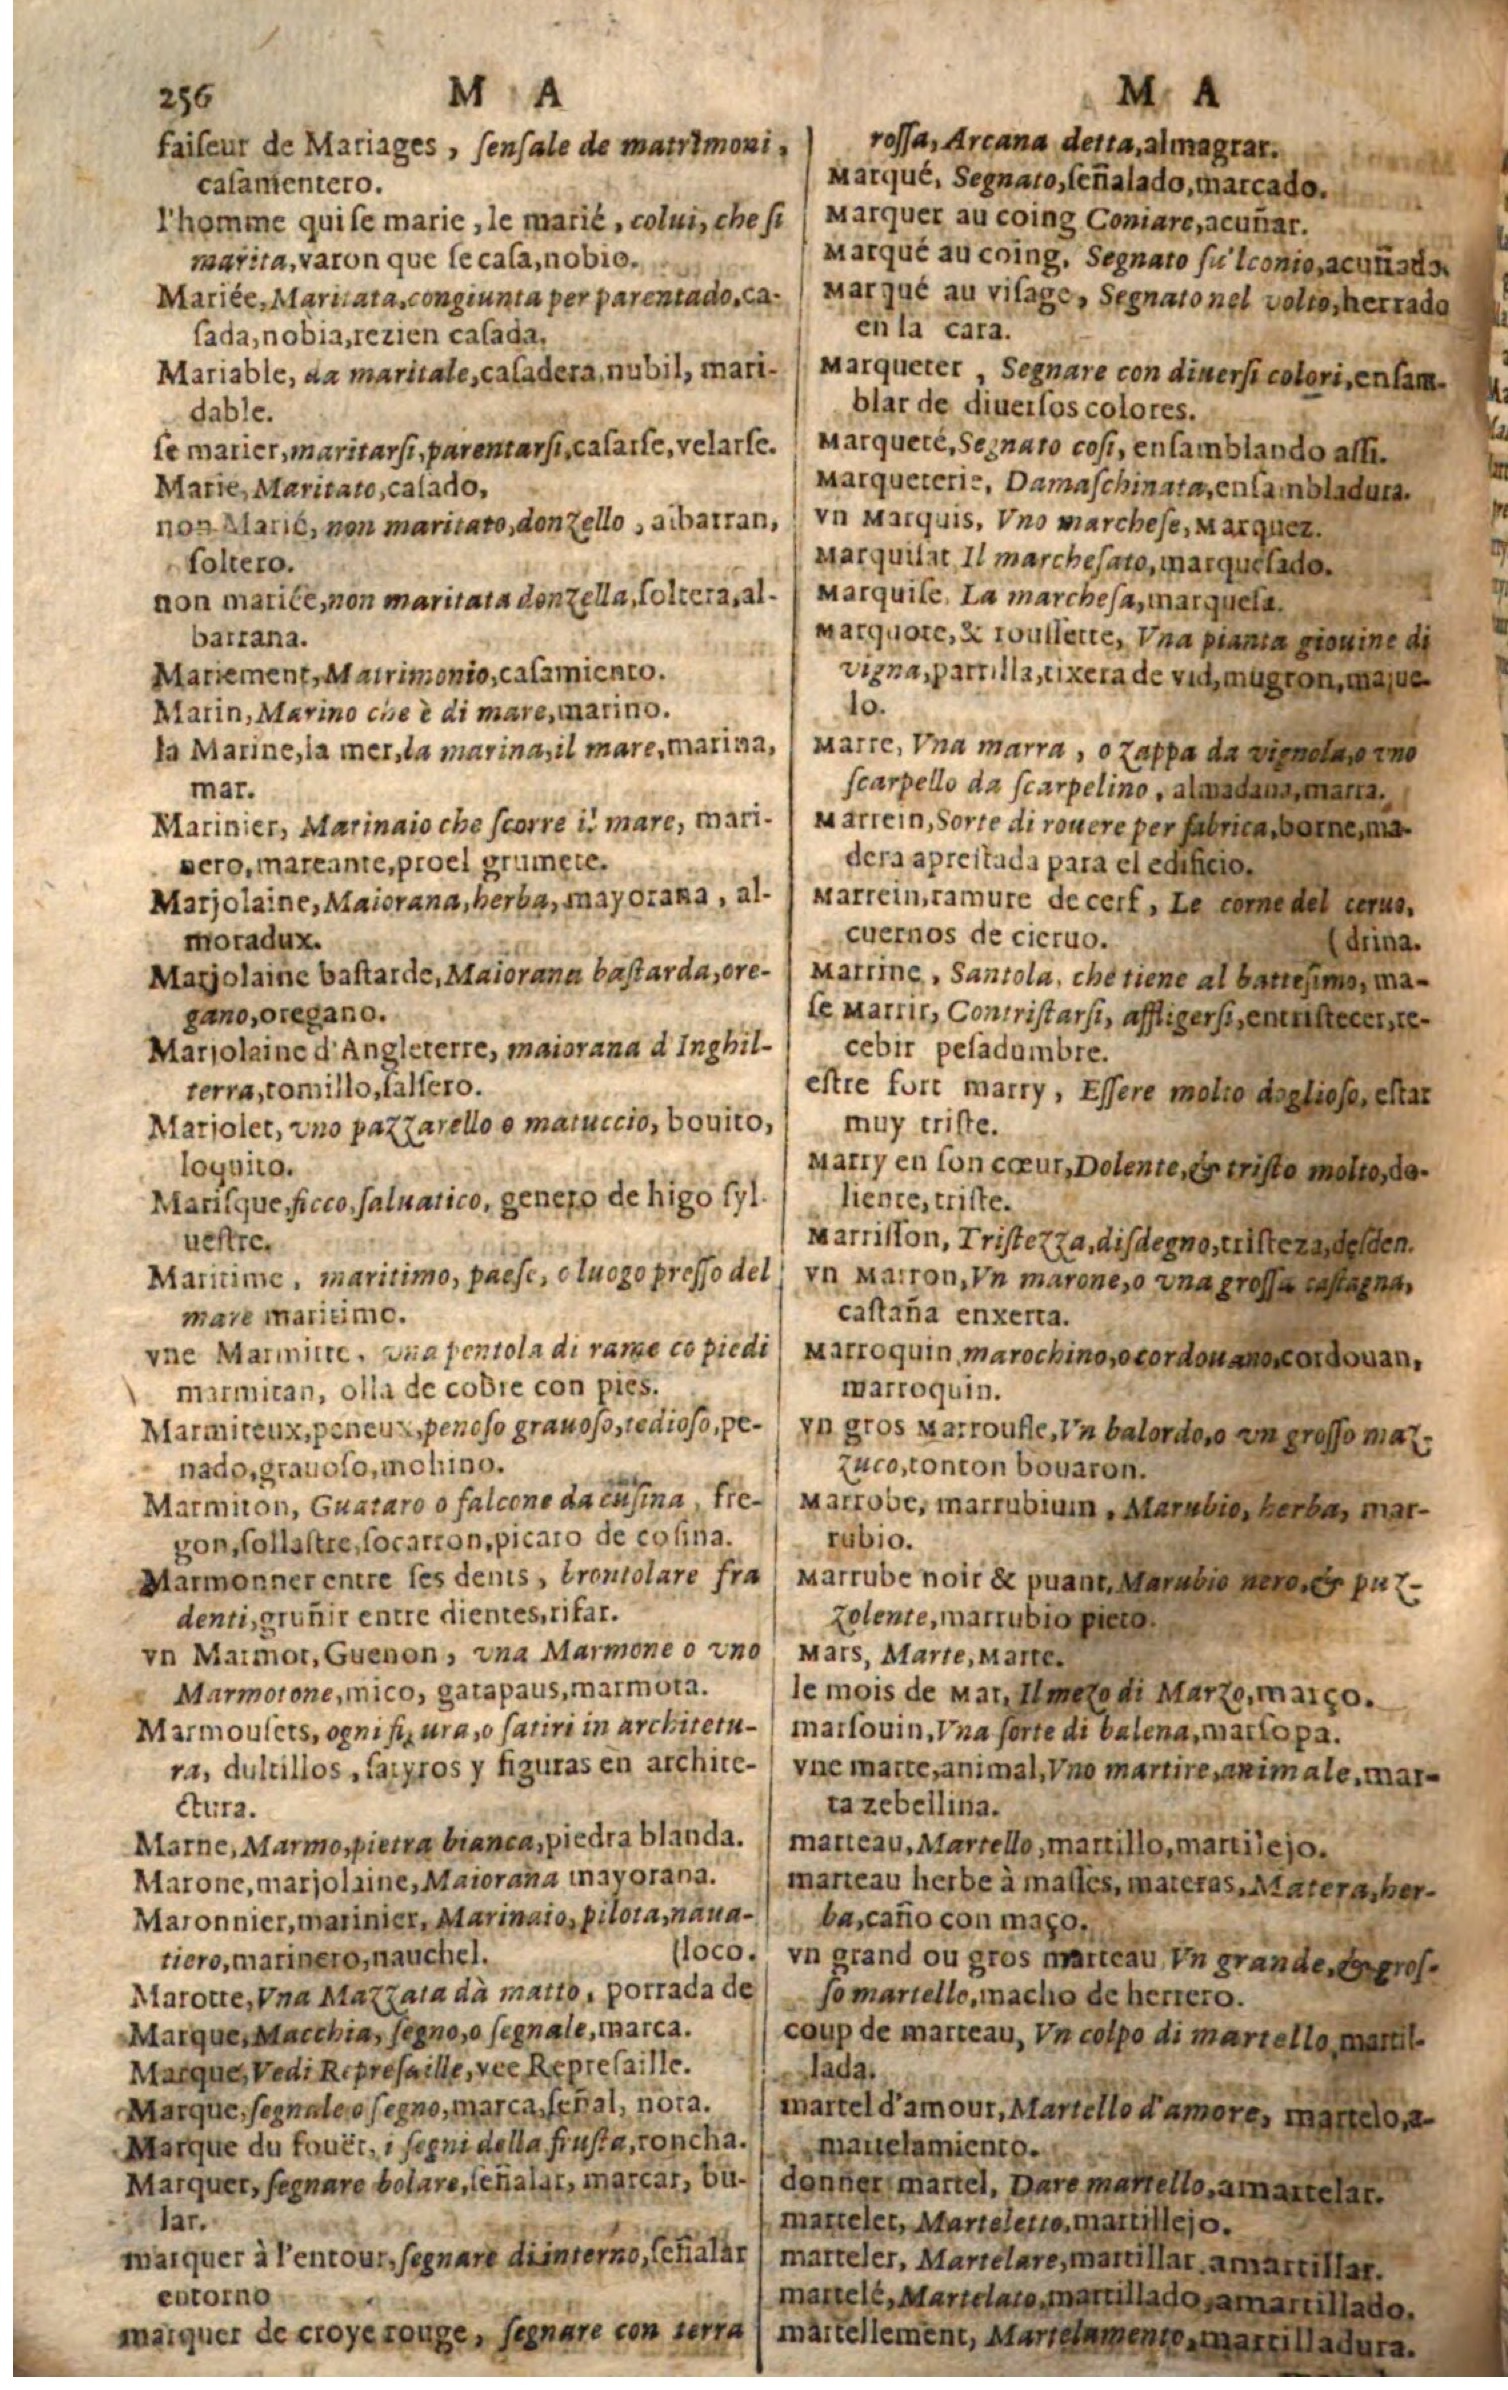 256 M A
faiſeur de Mariages, ſenſale de matrimoni,
caſamentero.
l'homme qui ſe marie, le marié, colui, che ſi
marita, varon que ſe caſa, nobio.
Mariée, Maritata, congiunta per parentado, ca-
ſada, nobia, rezien caſada.
Mariable, da maritale, caſadera, nubil, mari-
dable.
ſe marier, maritarſi, parentarſi, caſarſe, velarſe.
Marie, Maritato, caſado,
non Marié, non maritato, donzello, albarran,
ſoltero.
non mariée, non maritata donzella, ſoltera, al-
barrana.
Mariement, Matrimonio, caſamiento.
Marin, Marino che è di mare, marino.
la Marine, la mer, la marina, il mare, marina,
mar.
Marinier, Marinaio che ſcorre il mare, mari-
nero, mareante, proel grumete.
Marjolaine, Maiorana, herba, mayorana, al-
moradux.
Marjolaine baſtarde, Maiorana baſtarda, ore-
gano, oregano.
Marjolaine d'Angleterre, maiorana d'Inghil-
terra, tomillo, ſalſero.
Marjolet, vno pazzarello o matuccio, bouito,
loquito.
Mariſque, ficco, ſaluatico, genero de higo ſyl-
ueſtre.
Maritime, maritimo, paeſe, o luogo preſſo del
mare maritimo.
vne Marmitte, vna pentola di rame co piedi
marmitan, olla de cobre con pies.
Marmiteux, peneux, penoſo grauoſo, tedioſo, pe-
nado, grauoſo, mohino.
Marmiton, Guataro o falcone da cuſina, fre-
gon, ſollaſtre, ſocarron, picaro de coſina.
Marmonner entre ſes dents, brontolare fra
denti, gruñir entre dientes, rifar.
vn Marmot, Guenon, vna Marmone o vno
Marmotone, mico, gatapaus, marmota.
Marmouſets, ogni figura, o ſatiri in architetu-
ra, dultillos, ſatyros y figuras en archite-
ctura.
Marne, Marmo, pietra bianca, piedra blanda.
Marone, marjolaine, Maiorana mayorana.
Maronnier, marinier, Marinaio, pilota, naua-
tiero, marinero, nauchel. (loco.
Marotte, Vna Mazzata dà matto, porrada de
Marque, Macchia, ſegno, o ſegnale, marca.
Marque, Vedi Repreſaille, vee Repreſaille.
Marque, ſegnale o ſegno, marca, ſeñal, nota.
Marque du fouët, i ſegni della fruſta, roncha.
Marquer, ſegnare bolare, ſeñalar, marcar, bu-
lar.
marquer à l'entour, ſegnare di interno, ſeñalar
entorno
marquer de croye rouge, ſegnare con terra
M A
roſſa, Arcana detta, almagrar.
Marqué, Segnato, ſeñalado, marcado.
Marquer au coing Coniare, acuñar.
Marqué au coing, Segnato ſu'lconio, acuñado.
Marqué au viſage, Segnato nel volto, herrado
en la cara.
Marqueter, Segnare con diuerſi colori, enſam-
blar de diuerſos colores.
Marqueté, Segnato coſi, enſamblando aſſi.
Marqueterie, Damaſchinata, enſambladura.
vn Marquis, Vno marcheſe, Marquez.
Marquiſat Il marcheſato, marqueſado.
Marquiſe, La marcheſa, marqueſa.
Marquote, & rouſſette, Vna pianta giouine di
vigna, parrilla, tixera de vid, mugron, majue-
lo.
Marre, Vna marra, o zappa da vignola, o vno
ſcarpello da ſcarpelino, almadana, marra.
Marrein, Sorte di rouere per fabrica, borne, ma-
dera apreſtada para el edificio.
Marrein, ramure de cerf, Le corne del ceruo,
cuernos de cieruo. (drina.
Marrine, Santola, che tiene al batteſimo, ma-
ſe Marrir, Contriſtarſi, affligerſi, entriſtecer, re-
cebir peſadumbre.
eſtre fort marry, Eſſere molto doglioſo, eſtar
muy triſte.
Marry en ſon cœur, Dolente, & triſto molto, do-
liente, triſte.
Marriſſon, Triſtezza, diſdegno, triſteza, deſden.
vn Marron, Vn marone, o vna groſſa caſtagna,
caſtaña enxerta.
Marroquin, marochino, o cordouano, cordouan,
marroquin.
vn gros Marroufle, Vn balordo, o vn groſſo maz-
zuco, tonton bouaron.
Marrobe, marrubium, Marubio, herba, mar-
rubio.
Marrube noir & puant, Marubio nero, & puz-
zolente, marrubio prieto.
Mars, Marte, Marte.
le mois de Mar, Il mezo di Marzo, março.
marſouin, Vna ſorte di balena, marſopa.
vne marte, animal, Vno martire, animale, mar-
ta zebellina.
marteau, Martello, martillo, martilejo.
marteau herbe à maſſes, materas, Matera, her-
ba, caño con maço.
vn grand ou gros marteau, Vn grande, & groſ-
ſo martello, macho de herrero.
coup de marteau, Vn colpo di martello, martil-
lada.
martel d'amour, Martello d'amore, martelo, a-
martelamiento.
donner martel, Dare martello, amartelar.
martelet, Marteletto, martillejo.
marteler, Martelare, martillar, amartillar.
martelé, Martelato, martillado, amartillado.
martellement, Martelamento, martilladura.